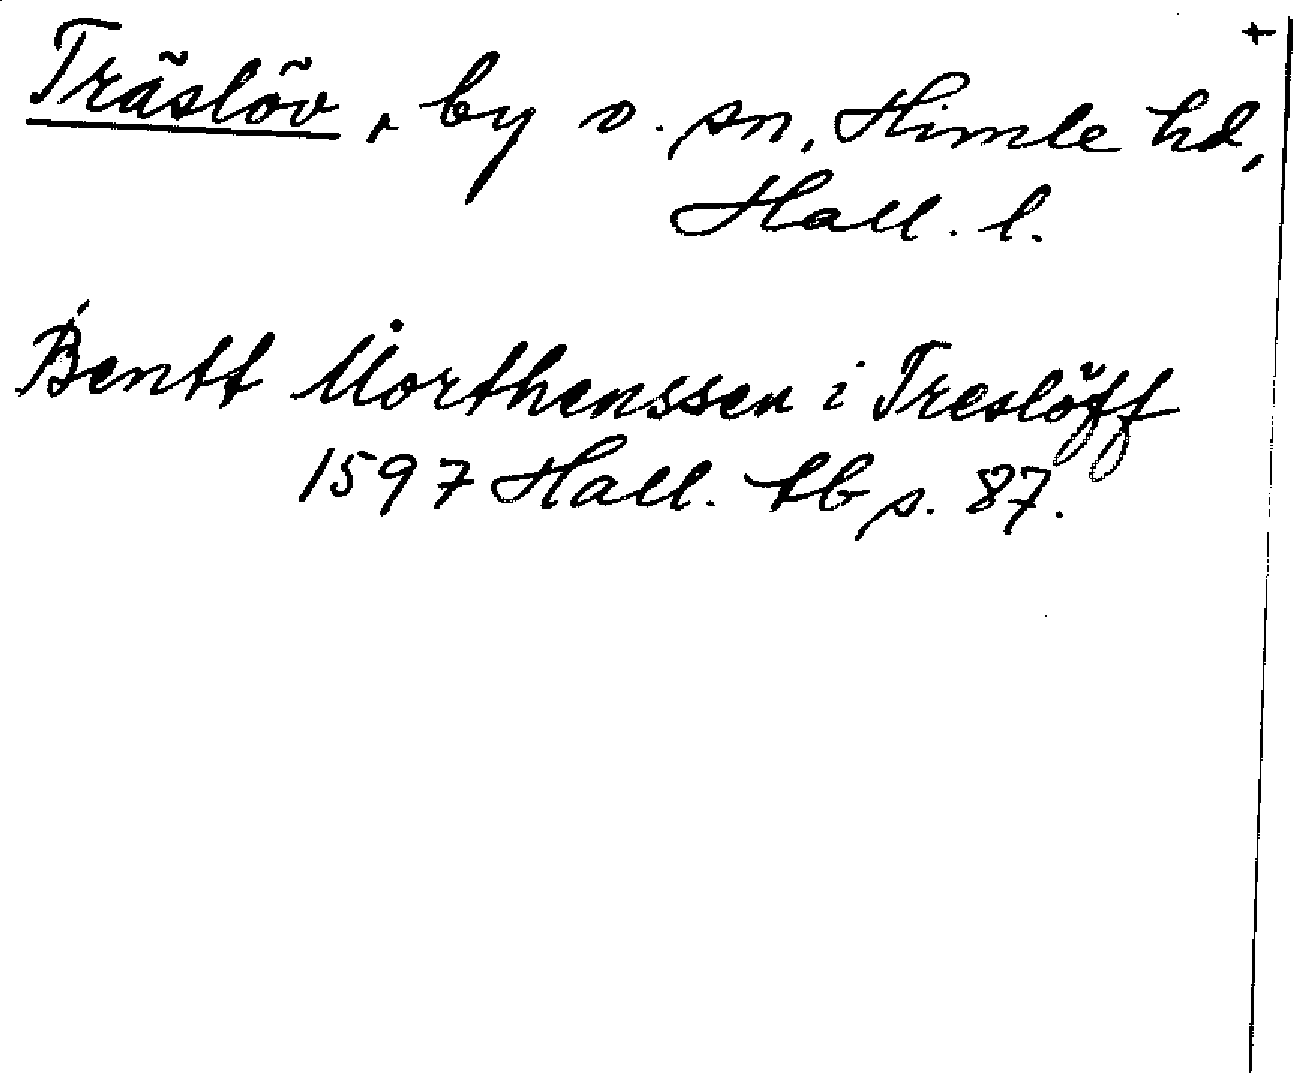 Träslöv, by o. sn, Himle hd,
Hall. l.
Bentt Morthenssen i Treslöff
1597 Hall. tb s. 87.